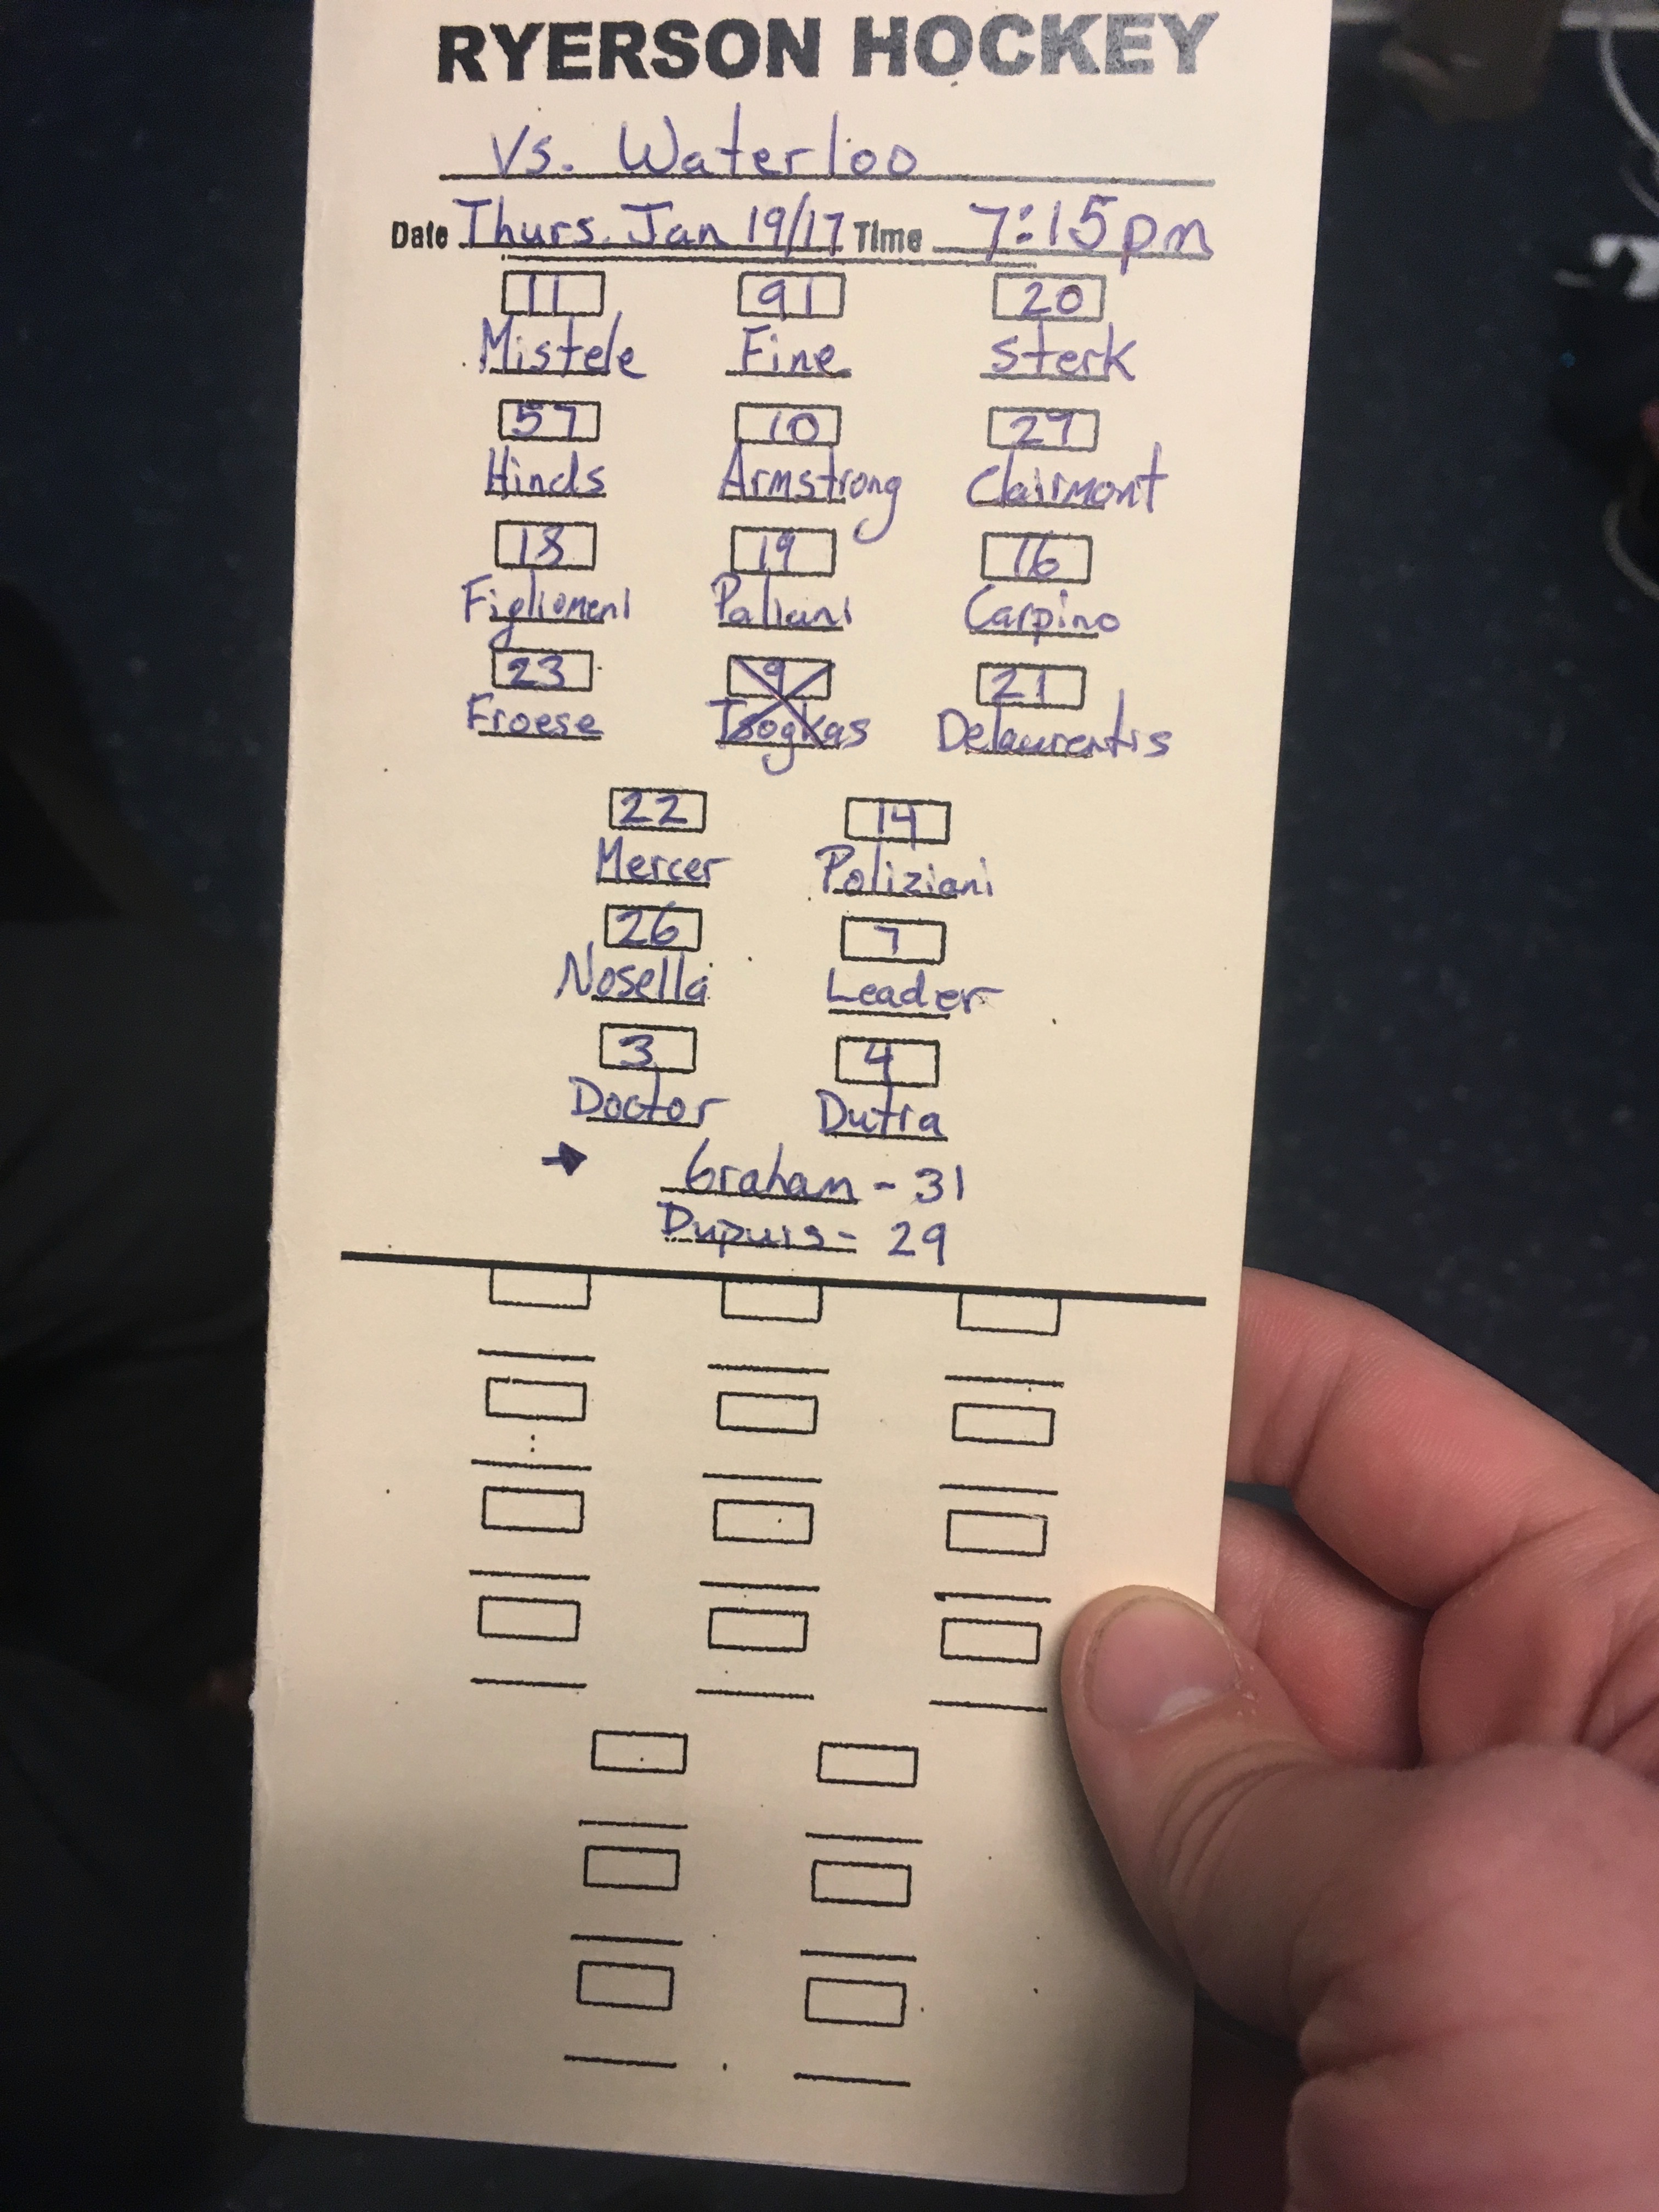 RYERSON HOCKEY
vs. Waterloo
Date Thurs. Jan 19/17 Time 7:15pm
11 91 20
Mistele Fine Sterk
57 10 27
Hinds Armstrong Clairmont
18 19 16
Figliomeni Paliani Carpino
23 9 21
Froese Tsogkas Delaurentis
22 14
Mercer Poliziani
26 7
Nosella Leader
3 4
Doctor Dutra
→ Graham - 31
Dupuis - 29